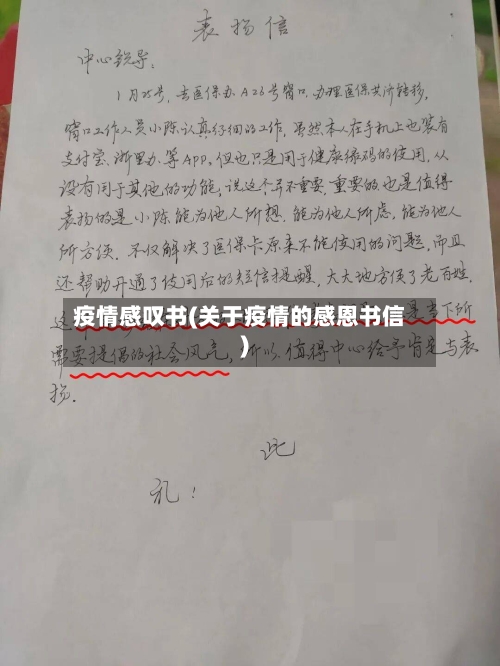 表扬信
中心领导：
1月25号，去医保办A26号窗口，办理医保共济转移，
窗口工作人员小陈认真仔细的工作，虽然本人在手机上也装有
支付宝、浙里办、等APP，但也只是用于健康绿码的使用，从
没有用于其他的功能，说这个并不重要，重要的也是值得
表扬的是小陈能为他人所想，能为他人所虑，能为他人
所方便，不仅解决了医保卡原来不能使用的问题，而且
还帮助开通了使用后的短信提醒，大大地方便了老百姓，
疫情感叹书(关于疫情的感恩书信
)
这 是当下所
需要提倡的社会风气，所以值得中心给予肯定与表
扬。
此
礼！